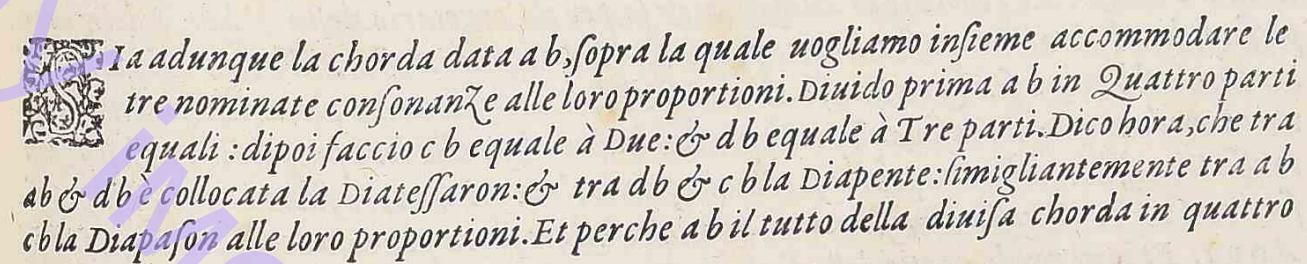 SIa adunque la chorda data a b, ſopra la quale uogliamo inſieme accommodare le
tre nominate conſonanze alle loro proportioni. Diuido prima a b in Quattro parti
equali : dipoi faccio c b equale à Due: & d b equale à Tre parti. Dico hora, che tra
ab & d b è collocata la Diateſſaron: & tra d b & c b la Diapente: ſimigliantemente tra a b
cb la Diapaſon alle loro proportioni. Et perche a b il tutto della diuiſa chorda in quattro